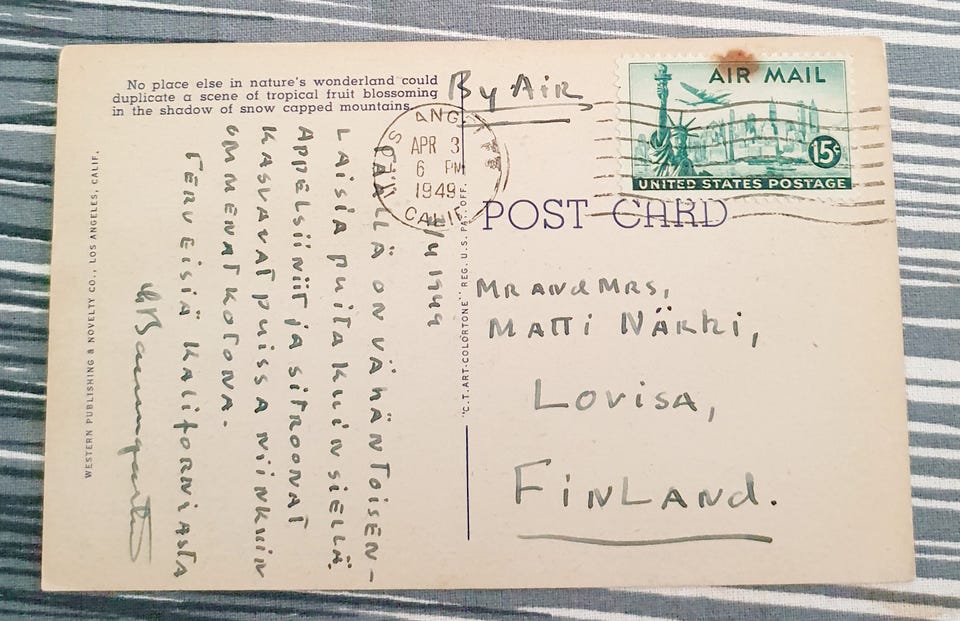 No place else in nature's wonderland could
duplicate a scene of tropical fruit blossoming
in the shadow of snow capped mountains.
1949
TÄÄLLÄ ON VÄHÄN TOISEN-
LAISIA PUITA KUIN SIELLÄ.
APPELSIINIT JA SITROONAT
KASVAVAT PUISSA NIINKUIN
OMMENAT KOTONA.
TERVEISIÄ KALIFORNIASTA
WESTERN PUBLISHING & NOVELTY CO., LOS ANGELES, CALIF.
"C.T. ART-COLORTONE" REG. U.S. PAT. OFF.
By Air
APR 3
6 PM
1949
CALIF
AIR MAIL
15¢
UNITED STATES POSTAGE
POST CARD
MR AND MRS,
MATTI NÄRKI,
LOVISA,
FINLAND.